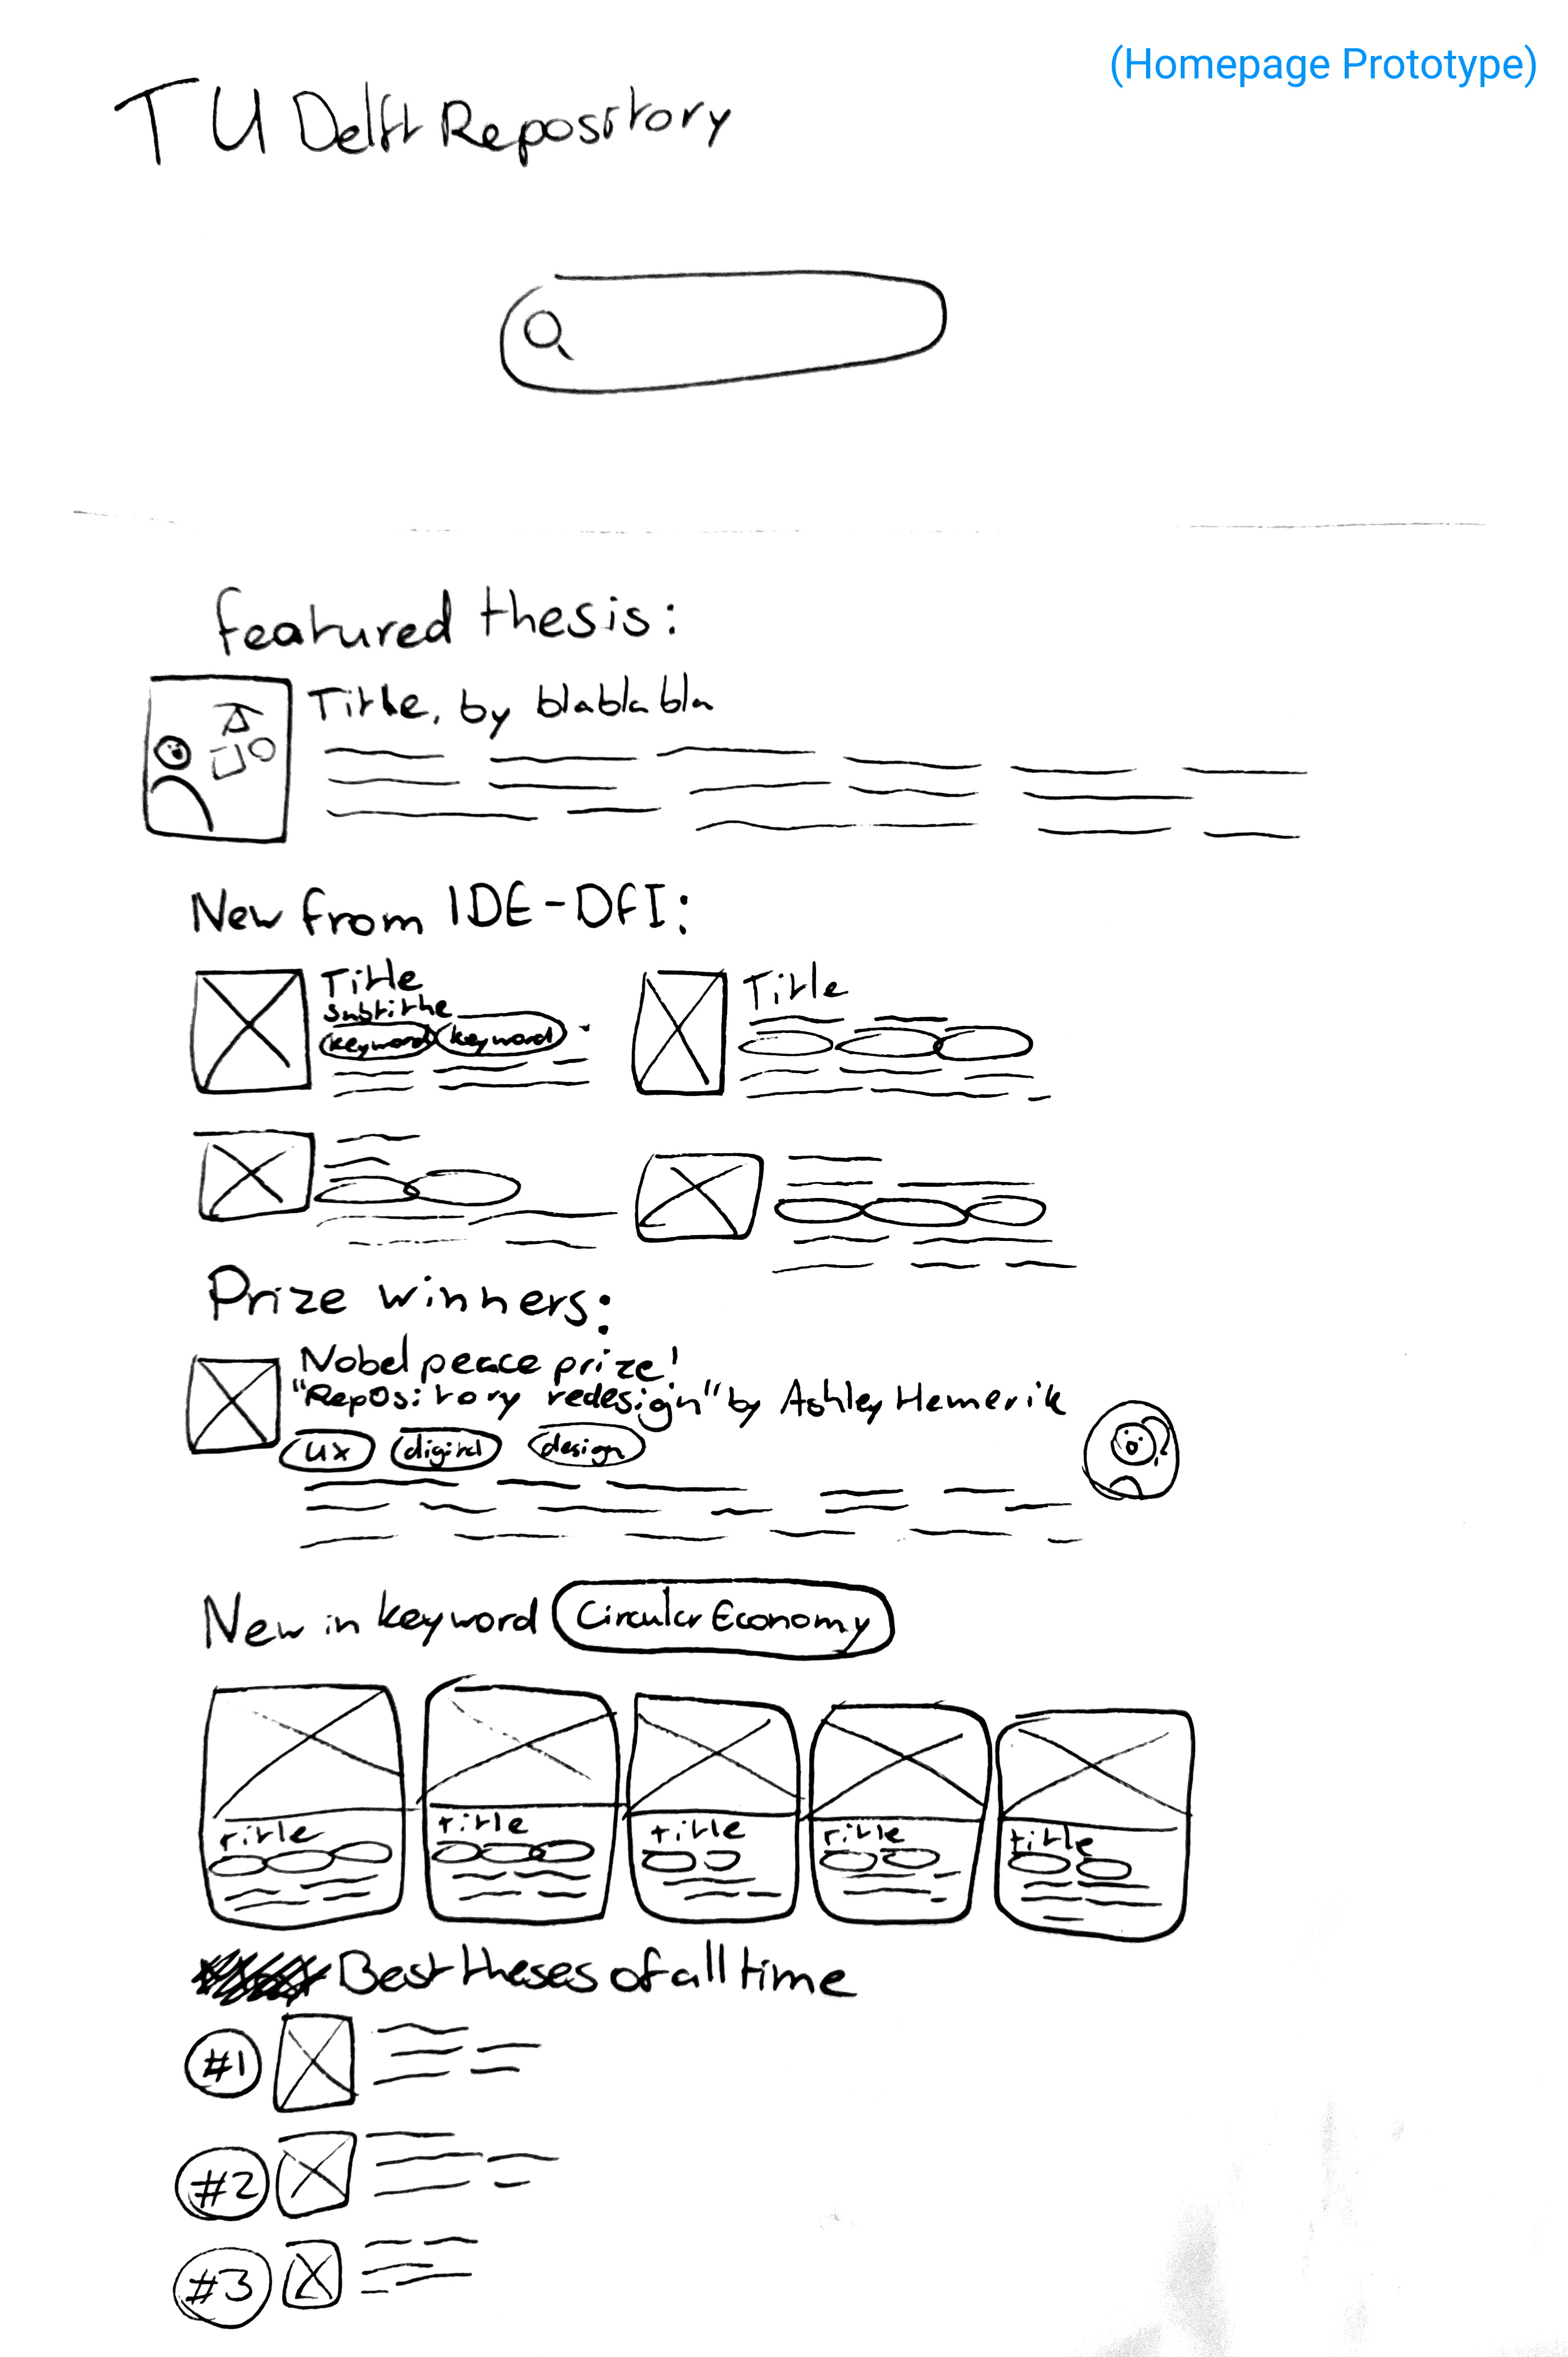 (Homepage Prototype)
TU Delft Repository
Featured thesis:
Title, by blablabla
New from IDE-DFI:
Title
Subtitle
keyword keyword
Title
Prize winners:
Nobel peace prize!
"Repository redesign" by Ashley Hemerik
UX digital design
New in keyword Circular Economy
title title title title title
Best theses of all time
#1
#2
#3